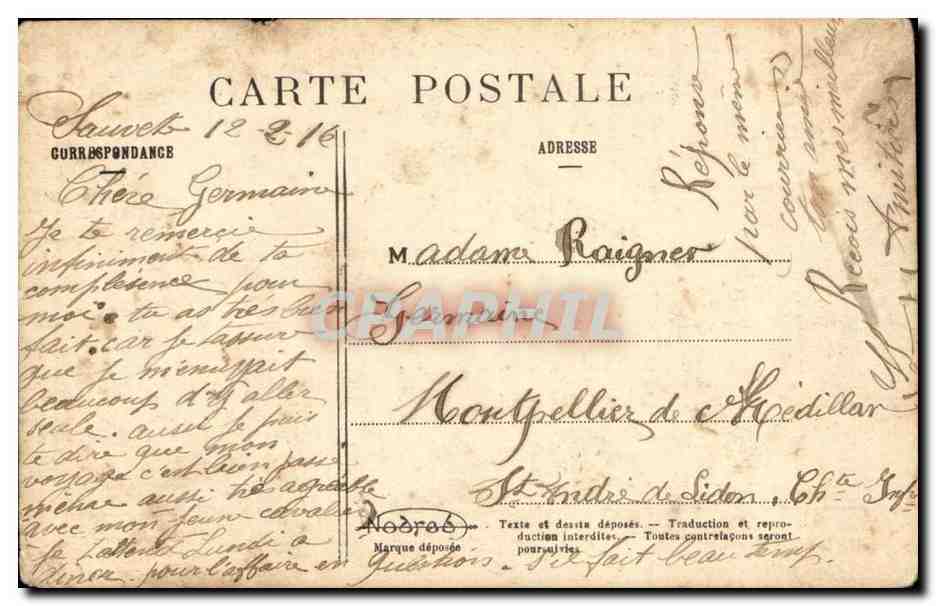 CARTE POSTALE
12-2-16
CORRESPONDANCE
ADRESSE
Chére Germaine
Je te remercie
infiniment de ta
complésence pour
moi. tu as très bien
fait. car je
que je m'ennuyait
beaucoup d'y aller
seule. aussi je puis
te dire que mon
voyage c'est bien passé
même aussi très agréable
avec mon jeune cavalier
Je t'attend Lundi a
diner. pour l'affaire en questions. s'il fait beau temp.
Madame Raigner
Germaine
Montpellier de Médillan
St André de Lidon. Chte Infre
Réponse
par le même
courrier
ton amie
Recois mes meilleurs
Amitiés
Texte et dessin déposés. — Traduction et repro-
duction interdites. — Toutes contrefaçons seront
poursuivies.
Marque déposée
CPAPHIL